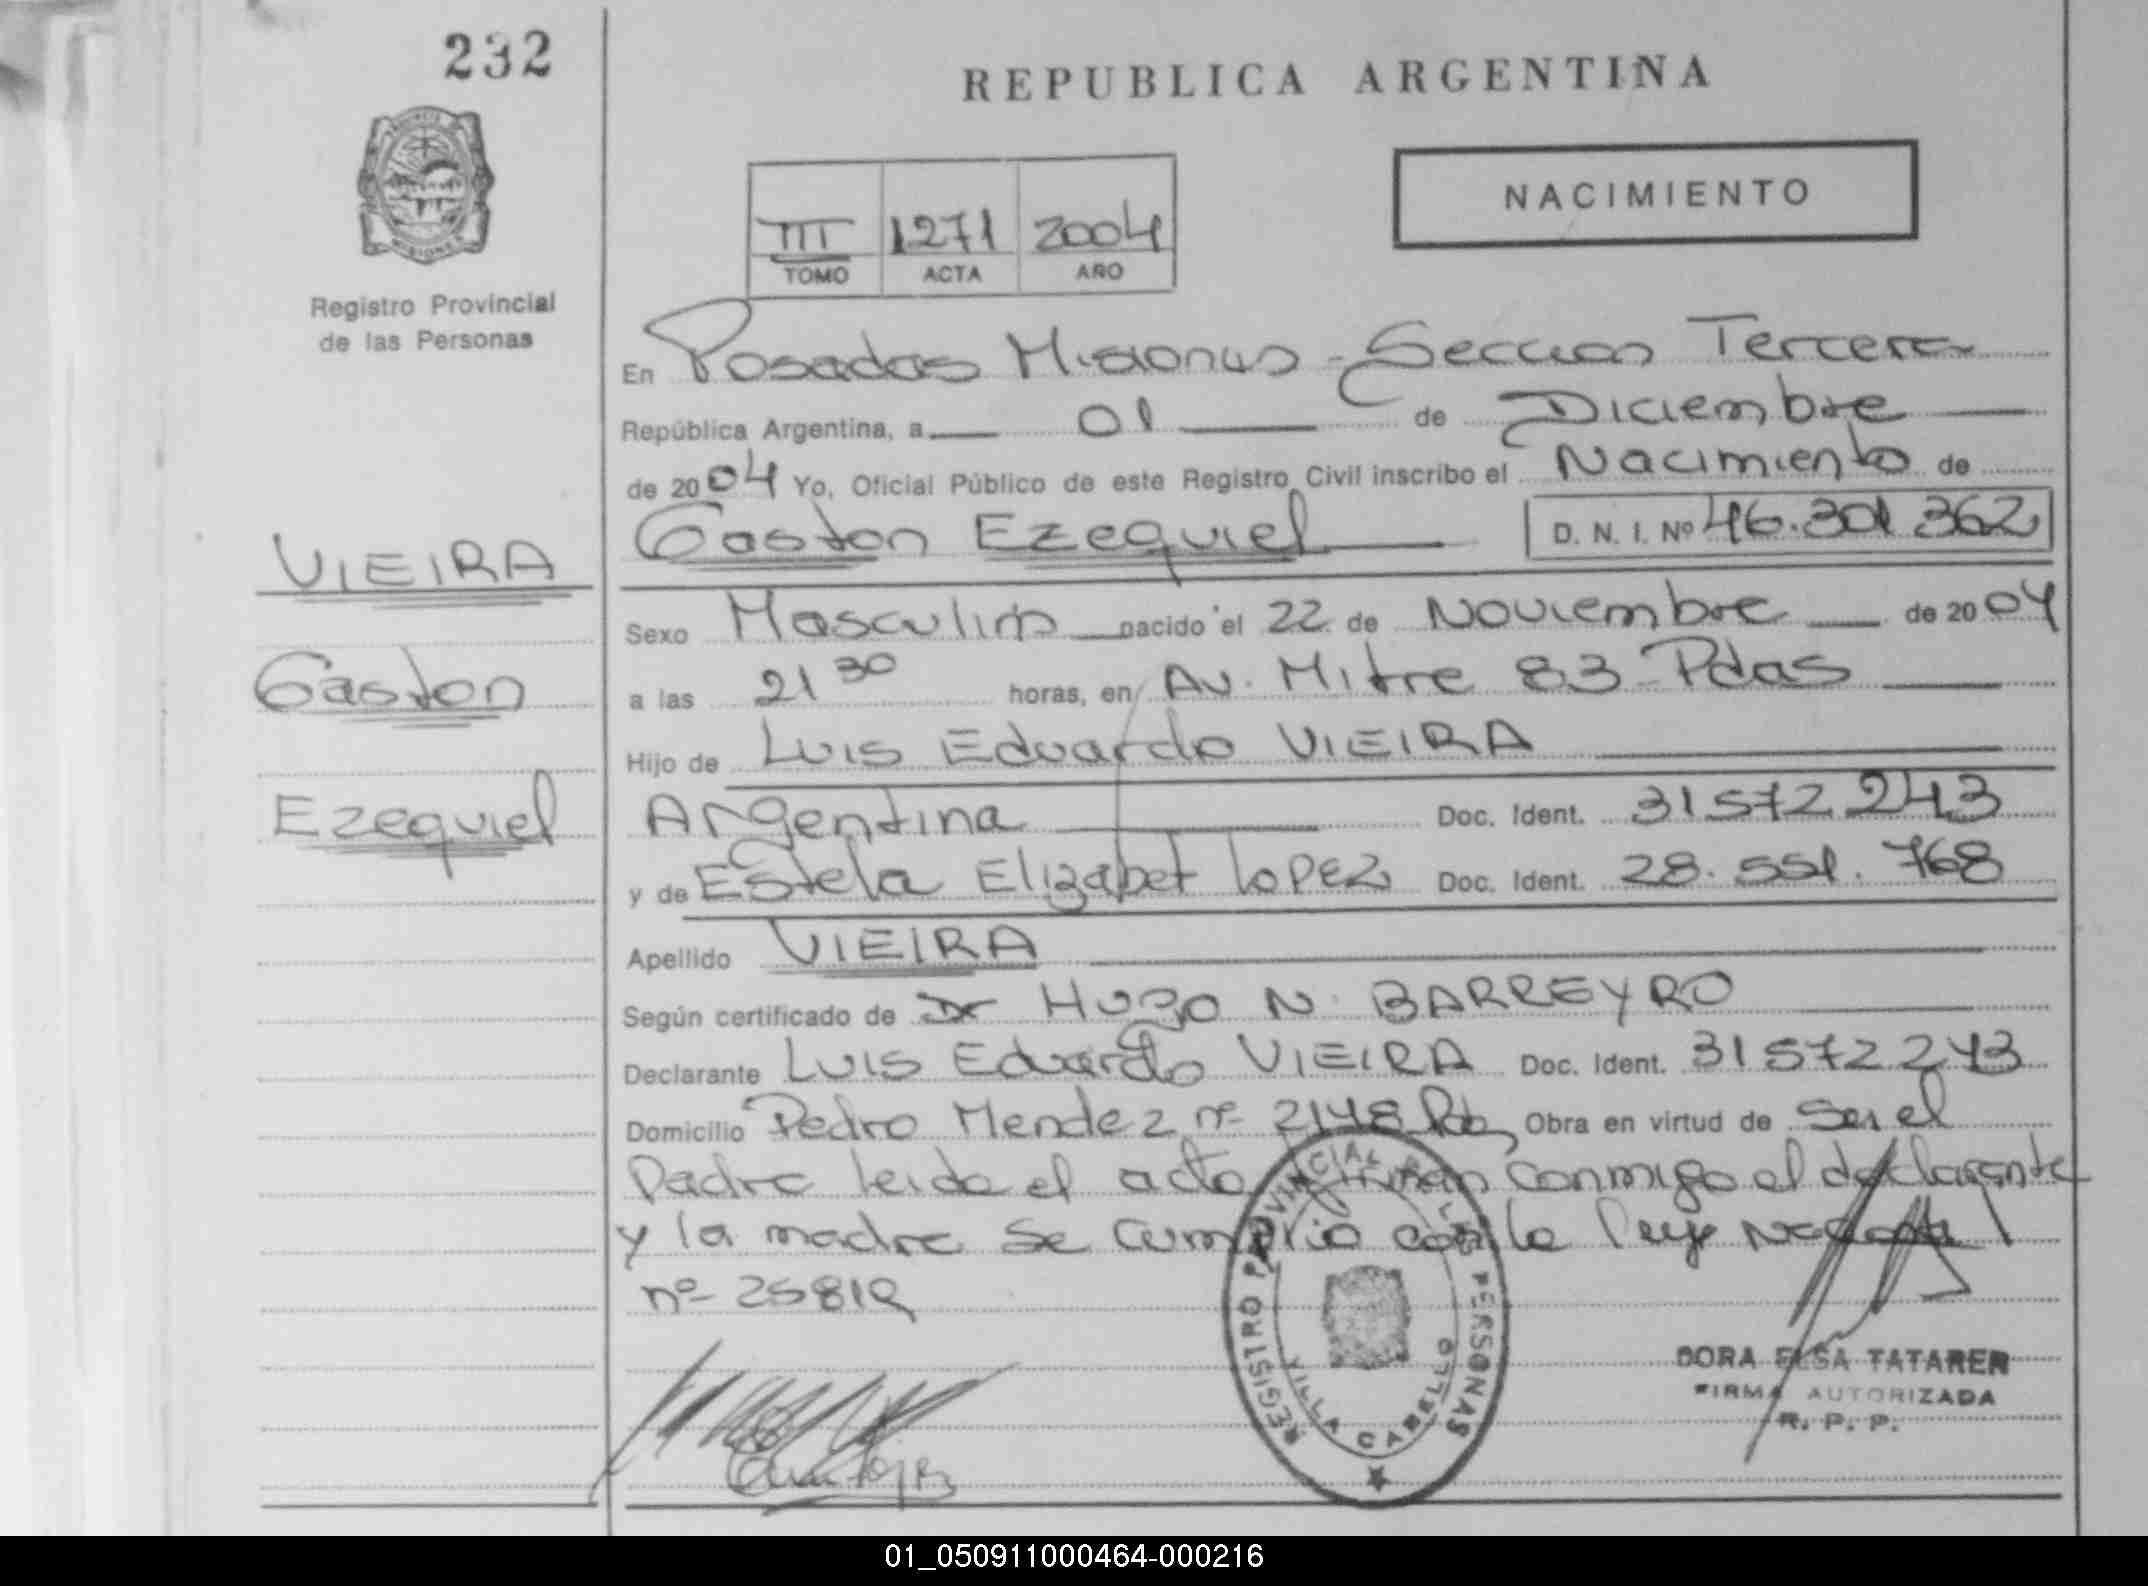 232
REPUBLICA ARGENTINA
NACIMIENTO
III 1271 2004
TOMO ACTA AÑO
Registro Provincial
de las Personas
En Posadas Misiones - Seccion Tercera
República Argentina, a 01 de Diciembre
de 2004 Yo, Oficial Público de este Registro Civil inscribo el Nacimiento de
Gaston Ezequiel D. N. I. Nº 46.301.362
VIEIRA
Gaston
Ezequiel
Sexo Masculino nacido el 22 de Noviembre de 2004
a las 21 30 horas, en Av. Mitre 83 - Pdas
Hijo de Luis Eduardo VIEIRA
Argentina Doc. Ident. 31572243
y de Estela Elizabet Lopez Doc. Ident. 28.551.768
Apellido VIEIRA
Según certificado de Dr HUGO N. BARREYRO
Declarante Luis Eduardo VIEIRA Doc. Ident. 31572243
Domicilio Pedro Mendez nº 2148 Obra en virtud de Ser el
Padre leida el acta firman conmigo el declarante
y la madre Se cumplio con la Ley Nacional
nº 25819
REGISTRO PROVINCIAL DE LAS PERSONAS
VILLA CABELLO
DORA ELSA TATAREN
FIRMA AUTORIZADA
R. P. P.
01_050911000464-000216